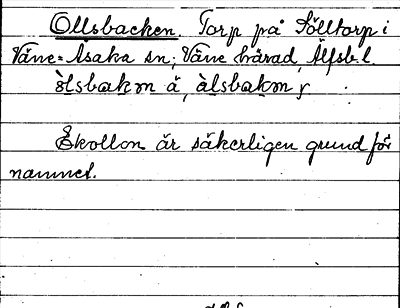 Ollsbacken. Torp på Sölltorp i
Väne-Åsaka sn; Väne härad, Älfsb. l.
òlsbakɔn ä, àlsbakɔn y
Ekollon är säkerligen grund för
namnet.